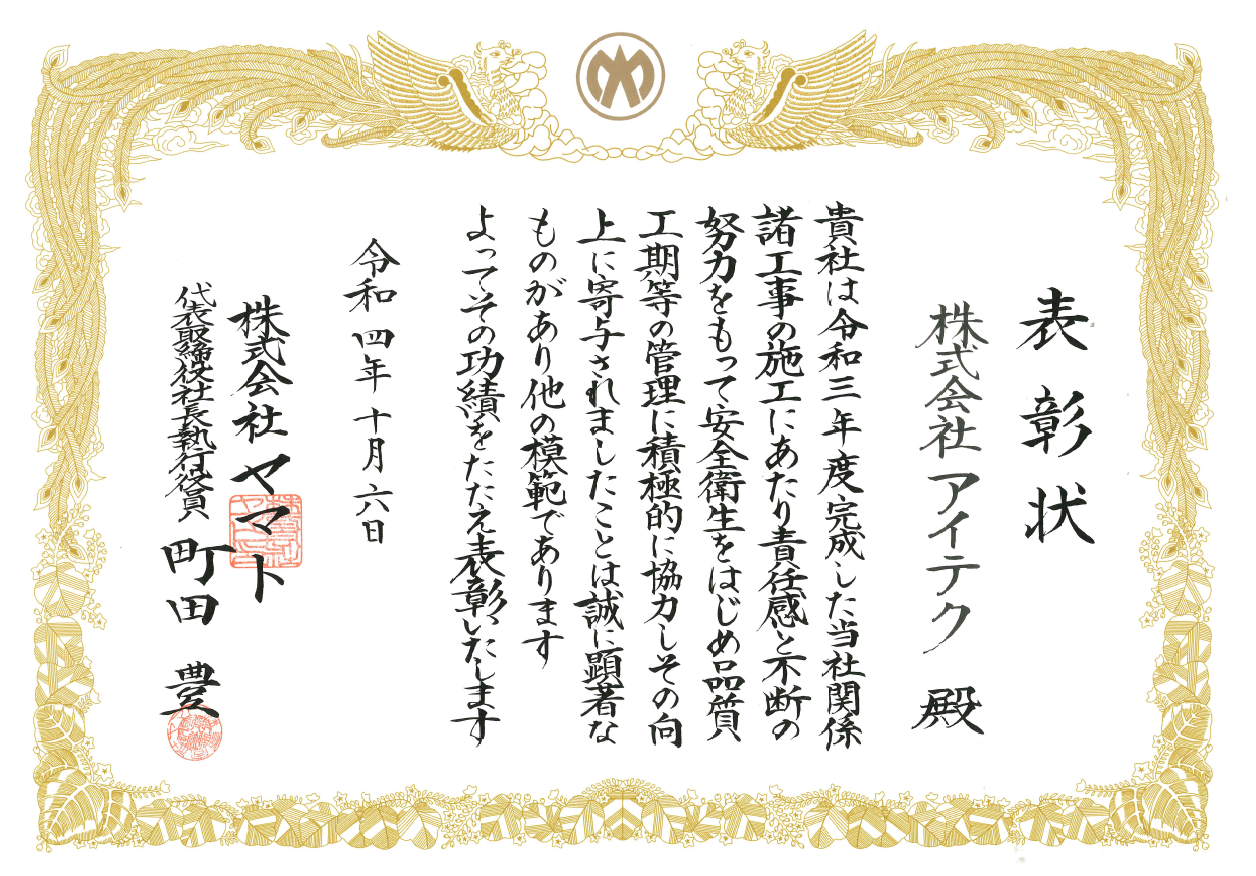 表彰状
株式会社アイテク 殿
貴社は令和三年度完成した当社関係
諸工事の施工にあたり責任感と不断の
努力をもって安全衛生をはじめ品質
工期等の管理に積極的に協力しその向
上に寄与されましたことは誠に顕著な
ものがあり他の模範であります
よってその功績をたたえ表彰いたします
令和四年十月六日
株式会社ヤマト
代表取締役社長執行役員 町田 豊